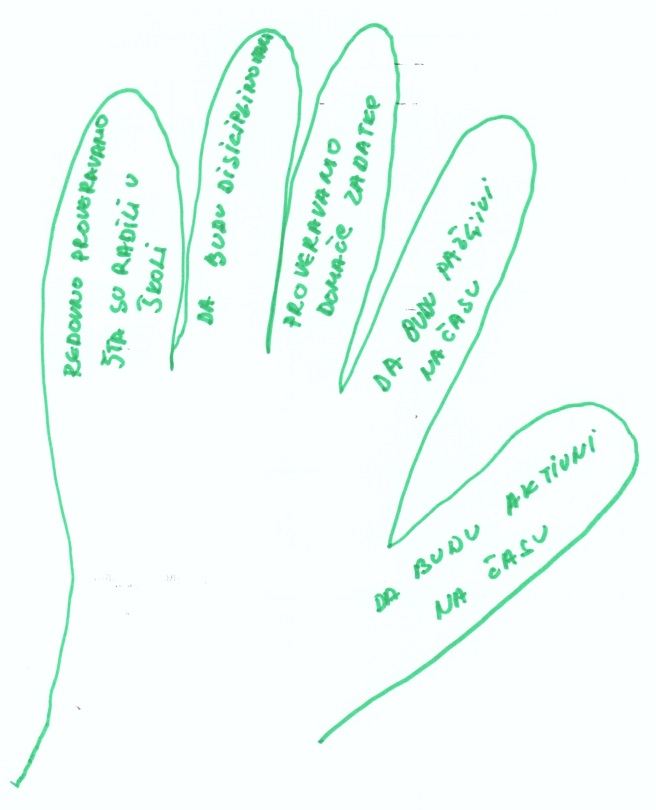 REDOVNO PROVERAVAMO
ŠTA SU RADILI U
ŠKOLI
DA BUDU DISICIPLINOVANI
PROVERAVAMO
DOMAĆE ZADATKE
DA BUDU PAŽLJIVI
NA ČASU
DA BUDU AKTIVNI
NA ČASU